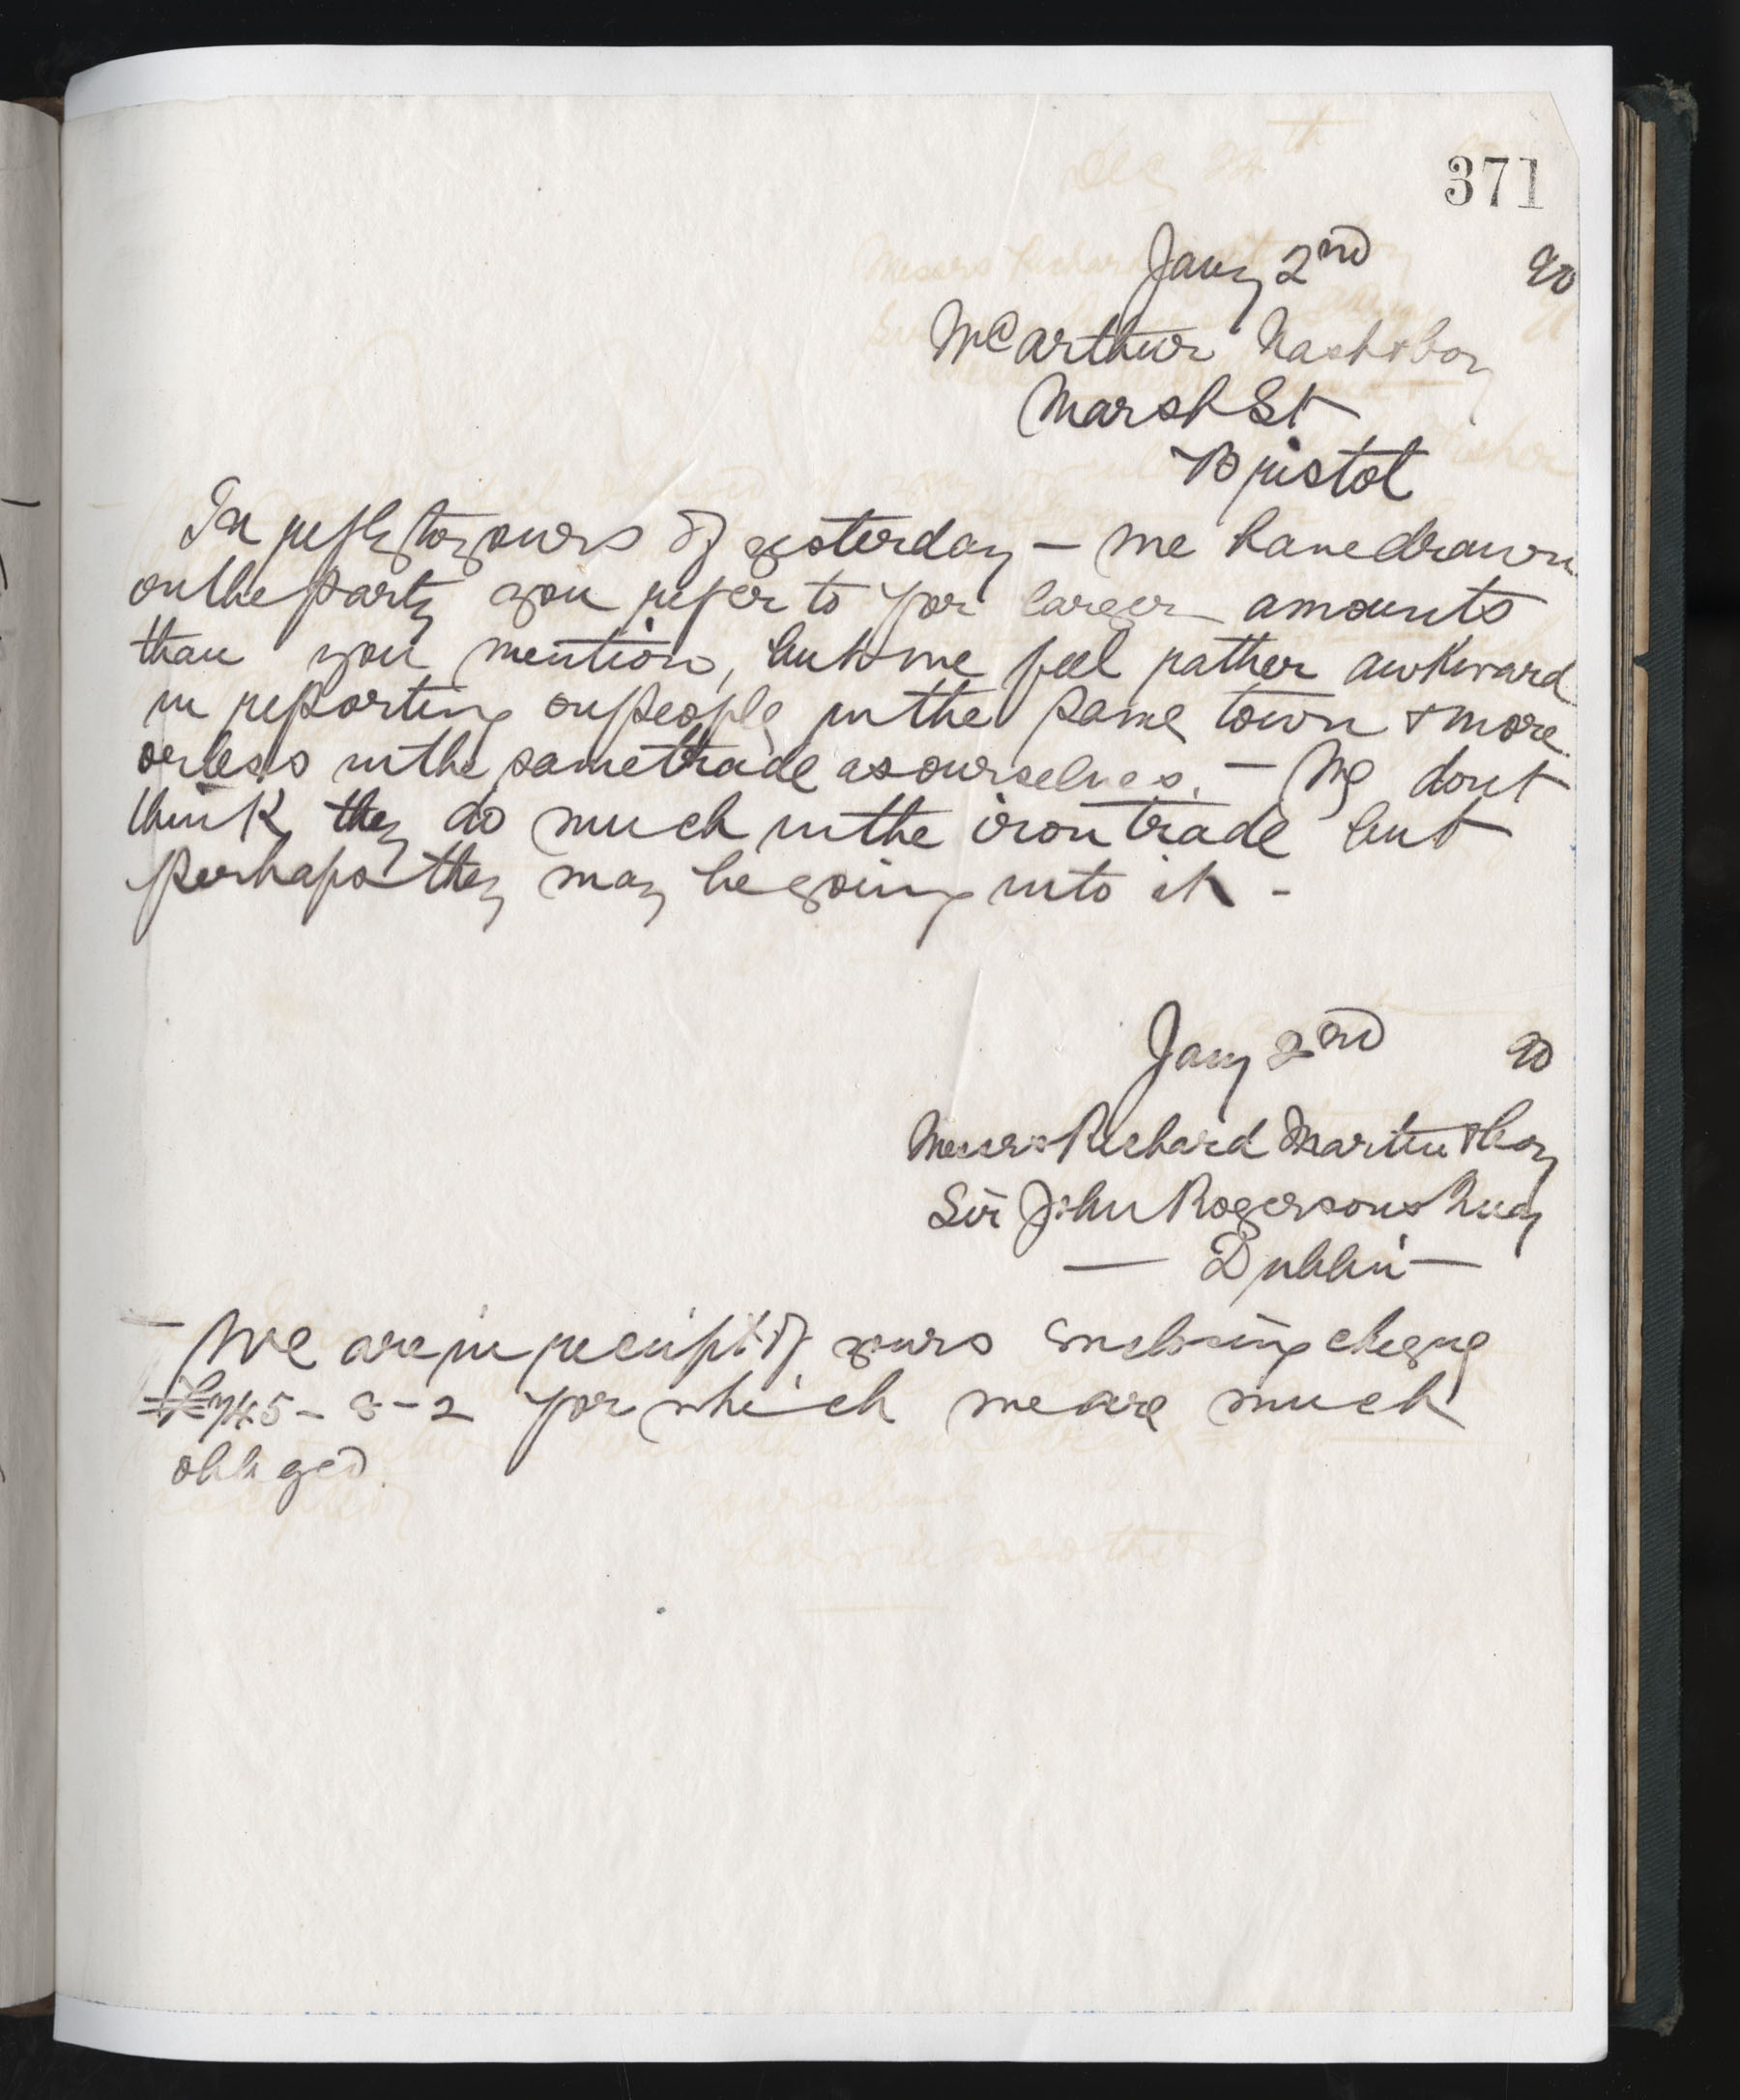 371
Jany 2nd 90
McArthur Nash & Coy
Marsh St
Bristol
In reply to yours of yesterday — we have drawn
on the party you refer to for larger amounts
than you mention, but we feel rather awkward
in reporting on people in the same town & more
or less in the same trade as ourselves. — We dont
think they do much in the iron trade but
perhaps they may be going into it -
Jany 2nd 90
Messrs Richard Martin & Coy
Sir John Rogersons Quay
— Dublin —
— We are in receipt of yours enclosing cheque
£745-8-2 for which we are much
obliged.